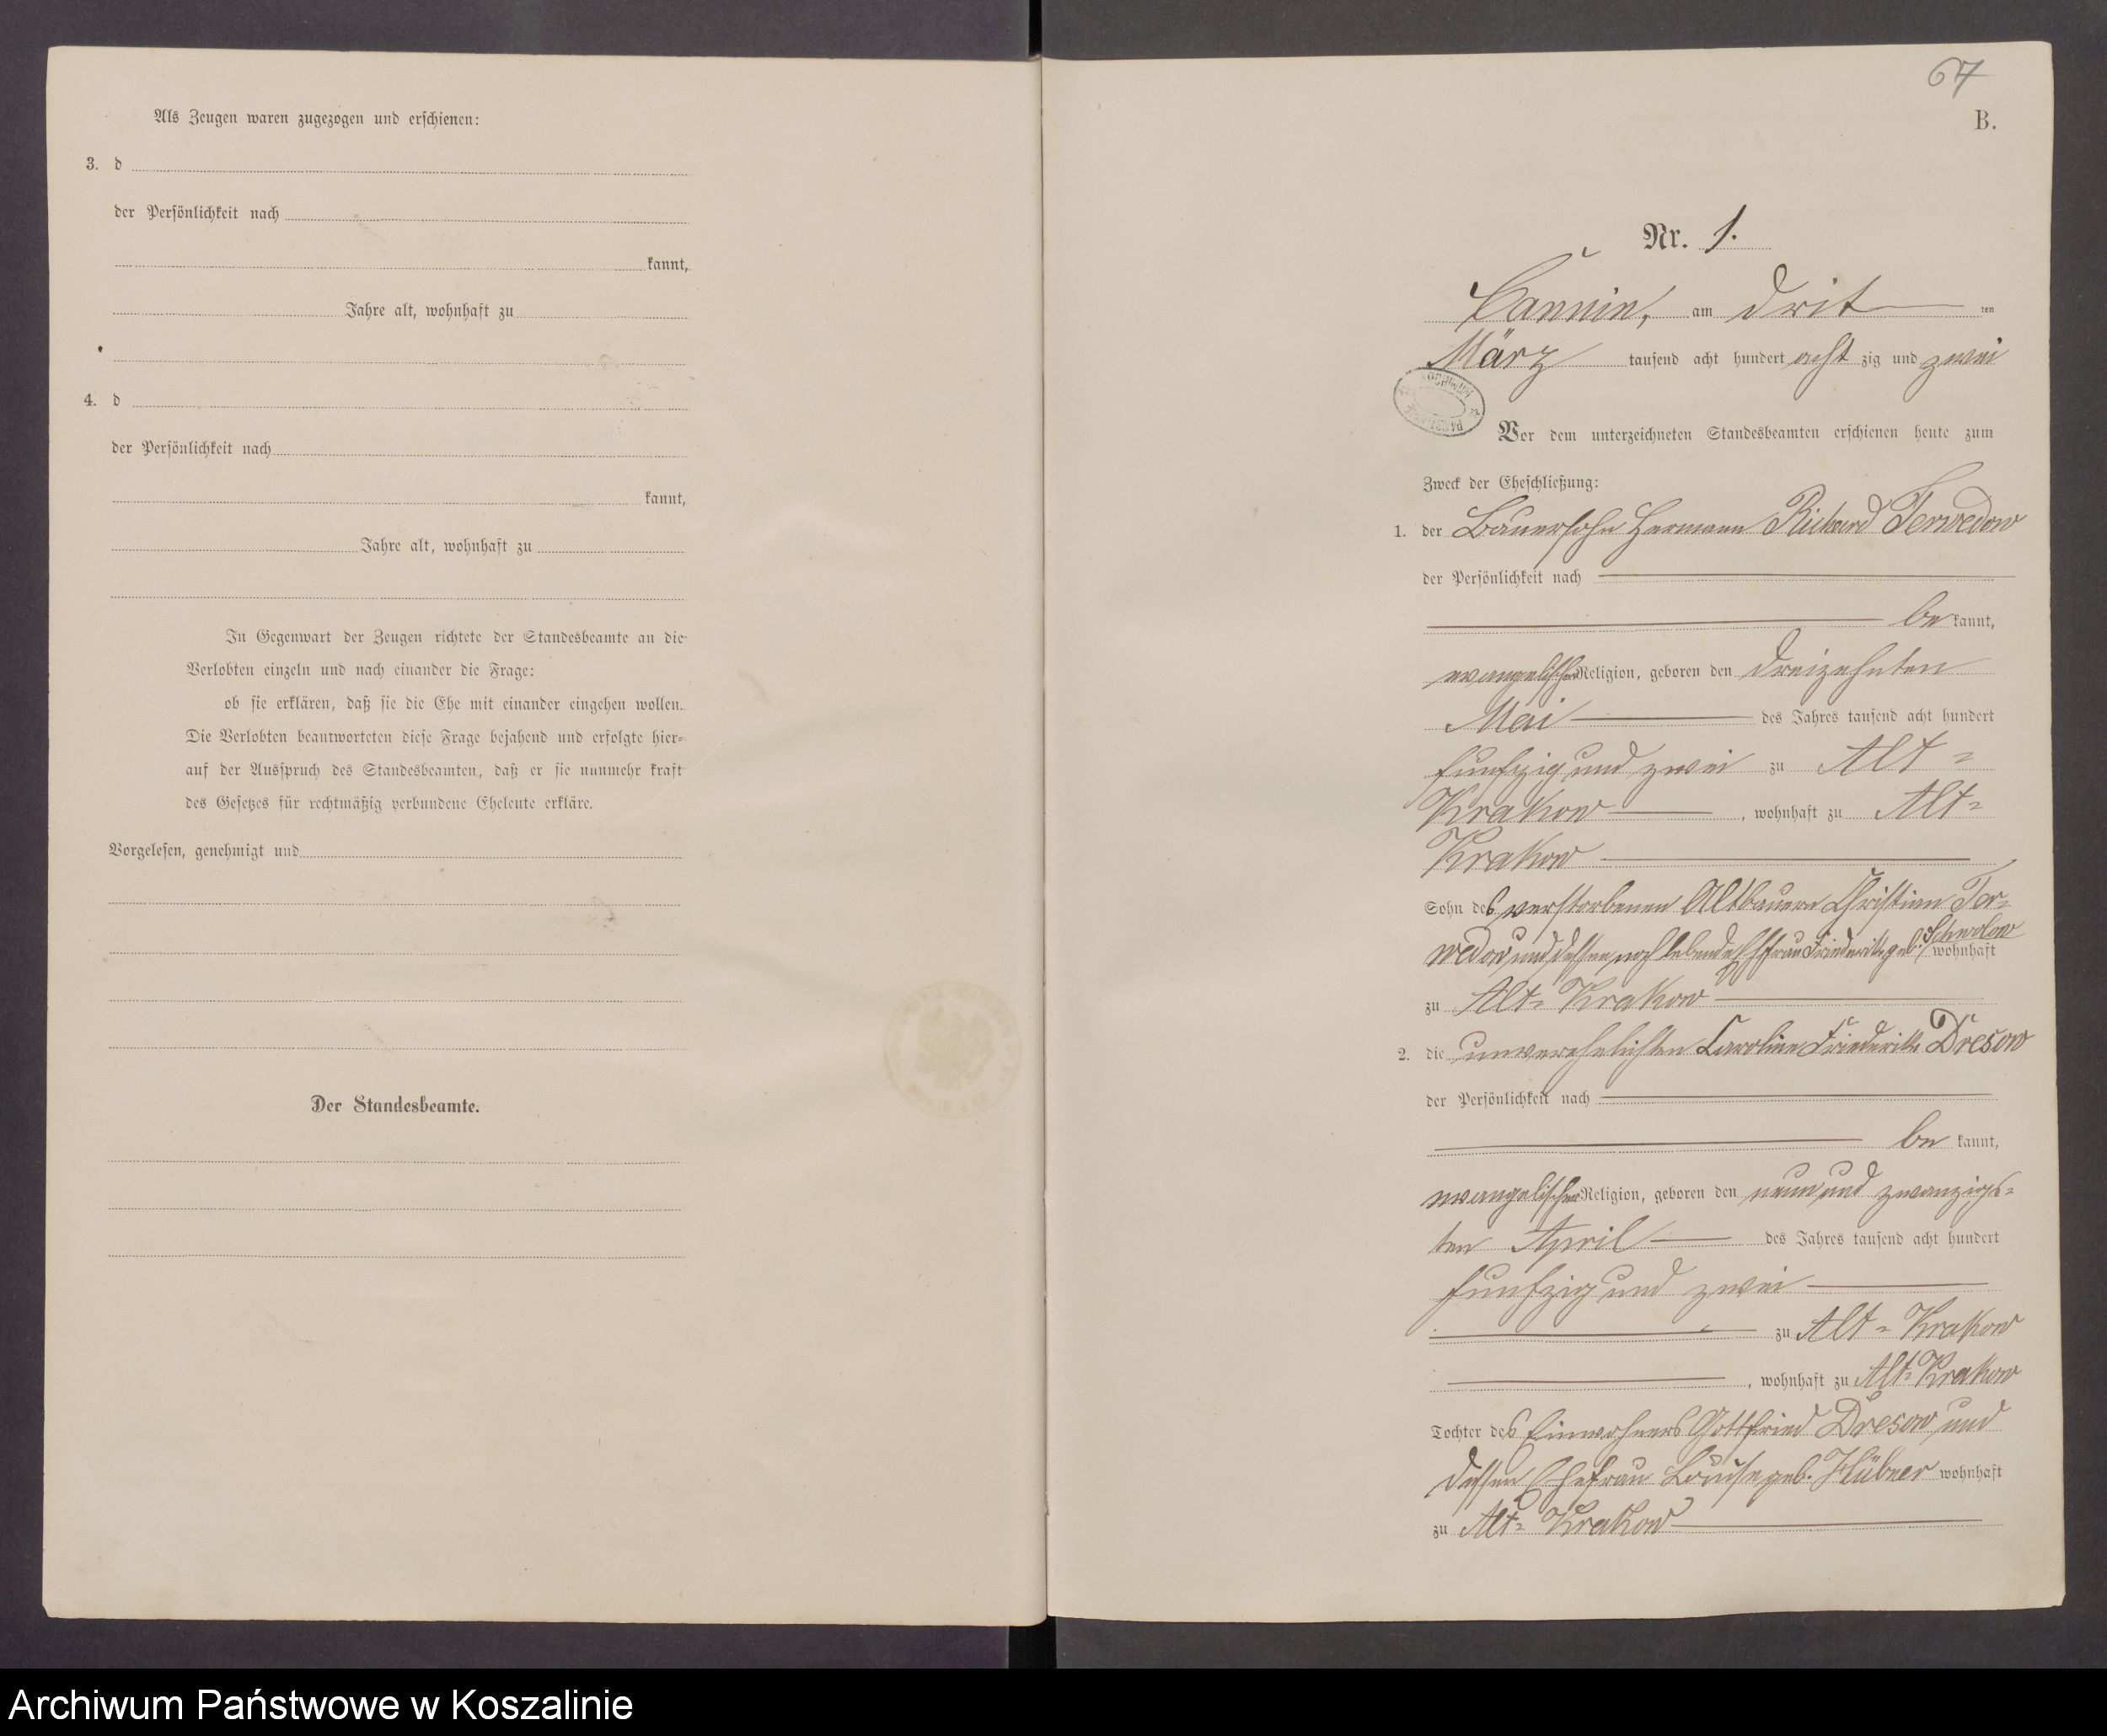 Als Zeugen waren zugezogen und erschienen:
3. d
der Persönlichkeit nach
kannt,
Jahre alt, wohnhaft zu
4. d
der Persönlichkeit nach
kannt,
Jahre alt, wohnhaft zu
In Gegenwart der Zeugen richtete der Standesbeamte an die
Verlobten einzeln und nach einander die Frage:
ob sie erklären, daß sie die Ehe mit einander eingehen wollen.
Die Verlobten beantworteten diese Frage bejahend und erfolgte hier-
auf der Ausspruch des Standesbeamten, daß er sie nunmehr kraft
des Gesetzes für rechtmäßig verbundene Eheleute erkläre.
Vorgelesen, genehmigt und
Der Standesbeamte.
67
B.
Nr. 1.
Cannin, am drit ten
März tausend acht hundert acht zig und zwei
Vor dem unterzeichneten Standesbeamten erschienen heute zum
Zweck der Eheschließung:
1. der Bauersohn Hermann Richard Terwedow
der Persönlichkeit nach
be kannt,
evangelischer Religion, geboren den dreizehnten
Mai des Jahres tausend acht hundert
funfzig und zwei zu Alt-
Krakow, wohnhaft zu Alt-
Krakow
Sohn des verstorbenen Altbauern Christian Ter-
wedow und dessen noch lebende Ehefrau Friederike geb. wohnhaft
zu Alt-Krakow
2. die unverehelichten Caroline Friederike Dresow
der Persönlichkeit nach
be kannt,
evangelischer Religion, geboren den neun und zwanzigs-
ten April des Jahres tausend acht hundert
funfzig und zwei
zu Alt-Krakow
, wohnhaft zu Alt-Krakow
Tochter des Einwohners Gottfried Dresow und
dessen Ehefrau Louise geb. Hübner wohnhaft
zu Alt-Krakow
Archiwum Państwowe w Koszalinie